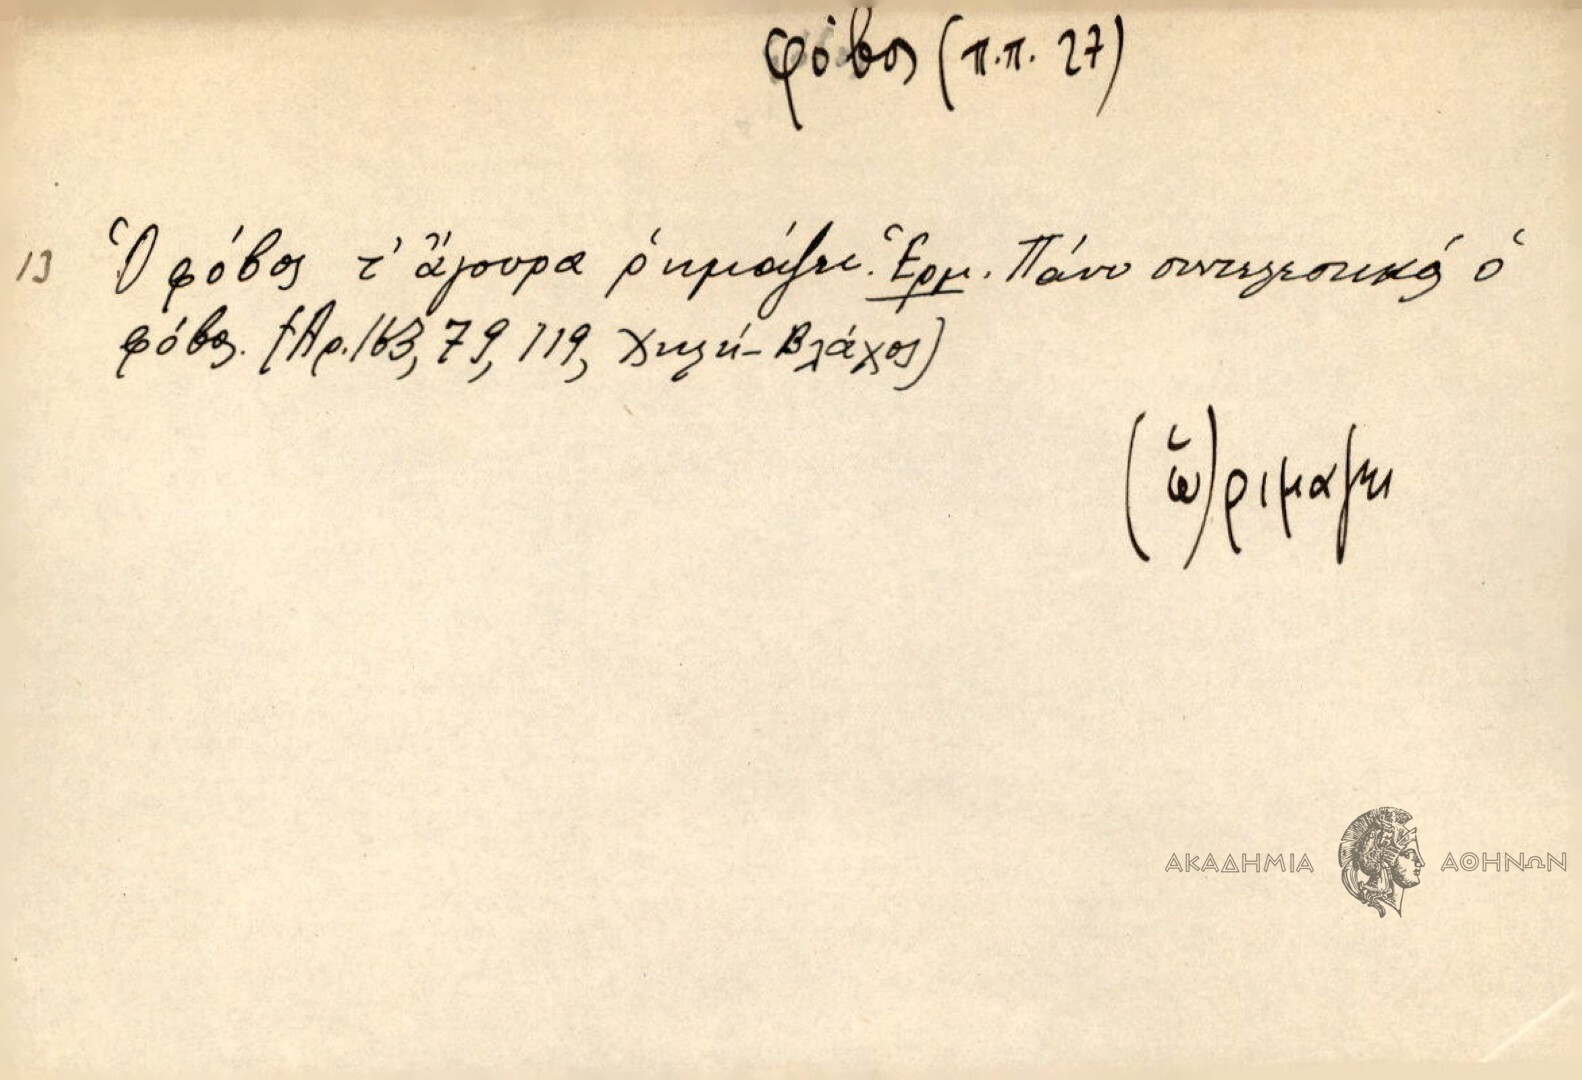 φόβος (π.π. 27)
13 Ὁ φόβος τ' ἄγουρα ῥημάζει. Ἑρμ. Πάνυ συντελεστικός ὁ
φόβος. (Ἀρ. 163, 79, 119, Χηλή - Βλάχος)
(ὡ)ριμάζει
ΑΚΑΔΗΜΙΑ ΑΘΗΝΩΝ